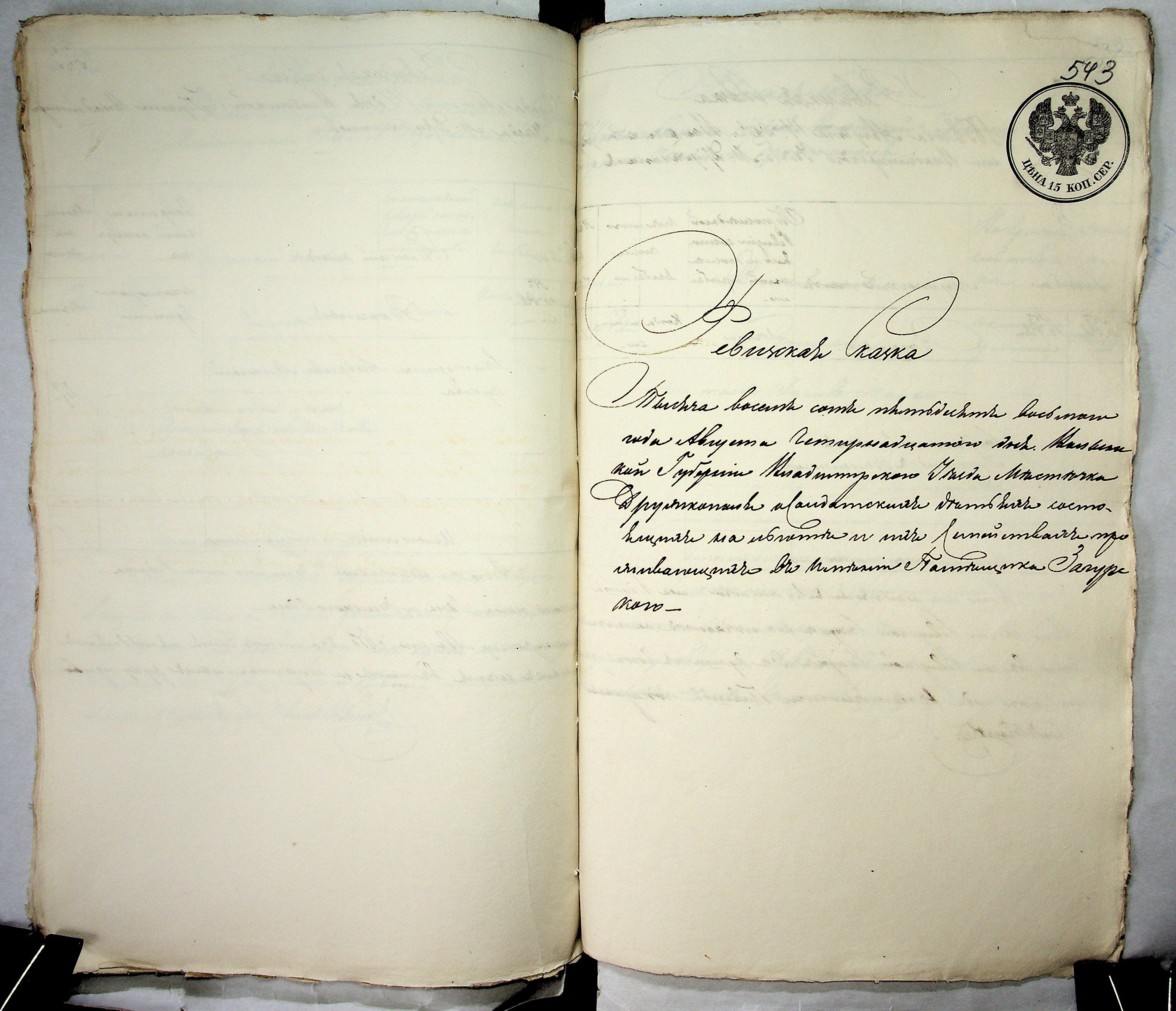 543
ЦѢНА 15 КОП. СЕР.
Ревизская Сказка
Тысяча восемь сотъ пятьдесятъ восьмого
года Августа Четырнадцатого дня. Волынс
кой Губерніи Владимірского Уѣзда Мѣстечка
Дружкополя о Солдатскихъ дѣтяхъ состо-
ящихъ на льготѣ и ихъ Семействахъ про
живающихъ въ имѣніи Помѣщика Загурс
кого